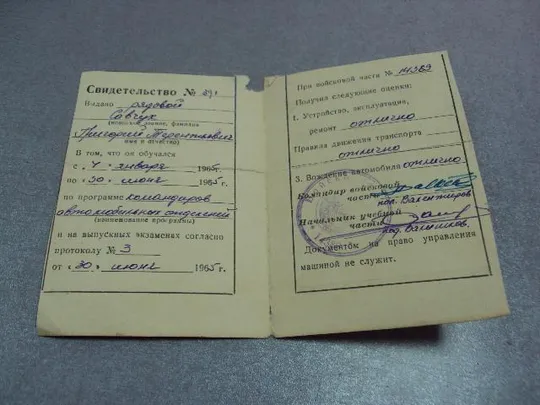 Свидетельство №
Выдано рядовой
Савчук
(воинское звание, фамилия
Григорий Терентьевич
имя и отчество)
В том, что он обучался
с „4“ январь 1965 г.
по „30“ июнь 1965 г.
по программе командиров
автомобильных отделений
(наименование программы)
и на выпускных экзаменах согласно
протоколу № 3
от «30» июнь 1965 г.
При войсковой части № 14389
Получил следующие оценки:
1. Устройство, эксплуатация,
ремонт отлично
Правила движения транспорта
отлично
3. Вождение автомобиля отлично
Командир войсковой
части
Начальник учебной
части
Документом на право управления
машиной не служит.